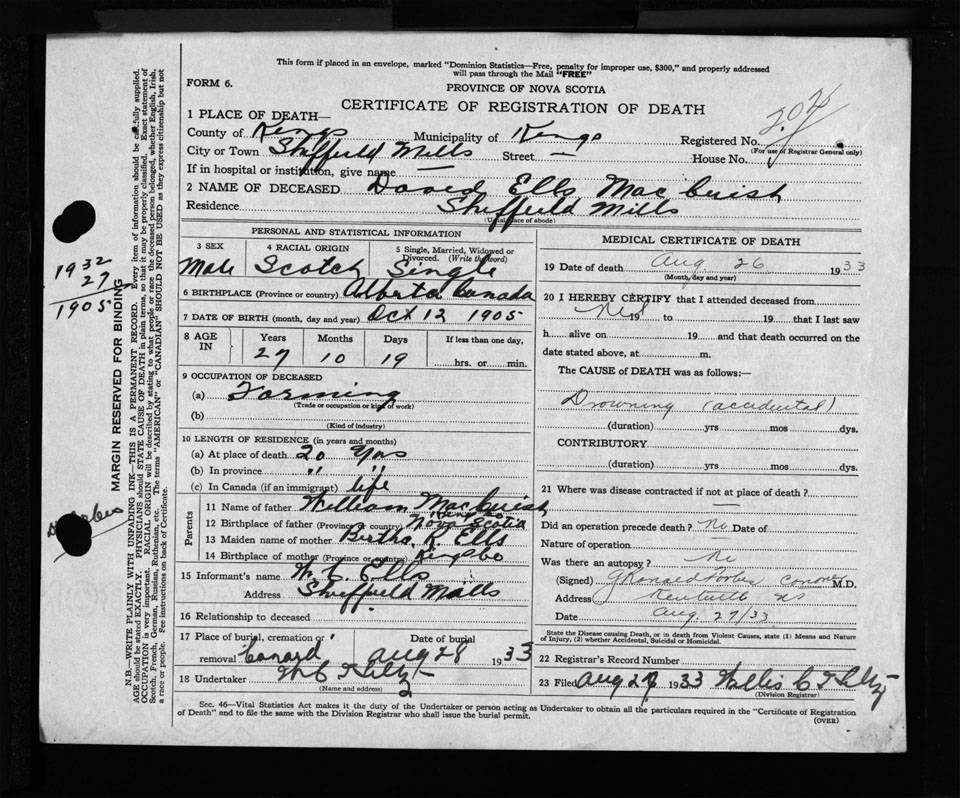 This form if placed in an envelope, marked "Dominion Statistics—Free, penalty for improper use, $300," and properly addressed
will pass through the Mail "FREE"
FORM 6.
PROVINCE OF NOVA SCOTIA
CERTIFICATE OF REGISTRATION OF DEATH
1 PLACE OF DEATH—
County of Kings Municipality of Kings Registered No. 204
(For use of Registrar General only)
City or Town Sheffield Mills Street — House No.
If in hospital or institution, give name —
2 NAME OF DECEASED David Ells MacCuish
Residence Sheffield Mills
(Usual place of abode)
PERSONAL AND STATISTICAL INFORMATION
3 SEX 4 RACIAL ORIGIN 5 Single, Married, Widowed or
Divorced. (Write the word)
Male Scotch Single
6 BIRTHPLACE (Province or country) Alberta Canada
7 DATE OF BIRTH (month, day and year) Oct 12 1905
8 AGE IN Years Months Days If less than one day,
27 10 19 hrs. or min.
9 OCCUPATION OF DECEASED
(a) Farming
(Trade or occupation or kind of work)
(b)
(Kind of industry)
10 LENGTH OF RESIDENCE (in years and months)
(a) At place of death 20 Yrs
(b) In province " "
(c) In Canada (if an immigrant) life
Parents
11 Name of father William MacCuish
12 Birthplace of father (Province or country) Kings Co Nova Scotia
13 Maiden name of mother Bertha R. Ells
14 Birthplace of mother (Province or country) Kings Co
15 Informant's name W. C. Ells
Address Sheffield Mills
16 Relationship to deceased
17 Place of burial, cremation or Date of burial
removal Canard Aug 28 1933
18 Undertaker W C
(Name and address)
MEDICAL CERTIFICATE OF DEATH
19 Date of death Aug 26 1933
(Month, day and year)
20 I HEREBY CERTIFY that I attended deceased from
Nil 19 to 19 that I last saw
h alive on 19 and that death occurred on the
date stated above, at m.
The CAUSE of DEATH was as follows:—
Drowning (accidental)
(duration) yrs mos dys.
CONTRIBUTORY
(duration) yrs mos dys.
21 Where was disease contracted if not at place of death?
—
Did an operation precede death? No Date of
Nature of operation
Was there an autopsy? No
(Signed) G Ronald Forbes Coroner M.D.
Address Kentville NS
Date Aug. 27/33
State the Disease causing Death, or in death from Violent Causes, state (1) Means and Nature
of Injury, (2) whether Accidental, Suicidal or Homicidal.
22 Registrar's Record Number
23 Filed Aug 28 1933 Willis C
(Division Registrar)
Sec. 46—Vital Statistics Act makes it the duty of the Undertaker or person acting as Undertaker to obtain all the particulars required in the "Certificate of Registration
of Death" and to file the same with the Division Registrar who shall issue the burial permit.
(OVER)
1932
27
1905
MARGIN RESERVED FOR BINDING
N.B.—WRITE PLAINLY WITH UNFADING INK—THIS IS A PERMANENT RECORD. Every item of information should be carefully supplied.
AGE should be stated EXACTLY. PHYSICIANS should STATE CAUSE OF DEATH in plain terms, so that it may be properly classified. Exact statement of
OCCUPATION is very important. RACIAL ORIGIN will be described by stating to what people or race the deceased person belonged, whether English, Irish,
Scotch, French, German, Russian, Ruthenian, etc. The terms "AMERICAN" or "CANADIAN" SHOULD NOT BE USED as they express citizenship but not
a race or people. See instructions on back of Certificate.